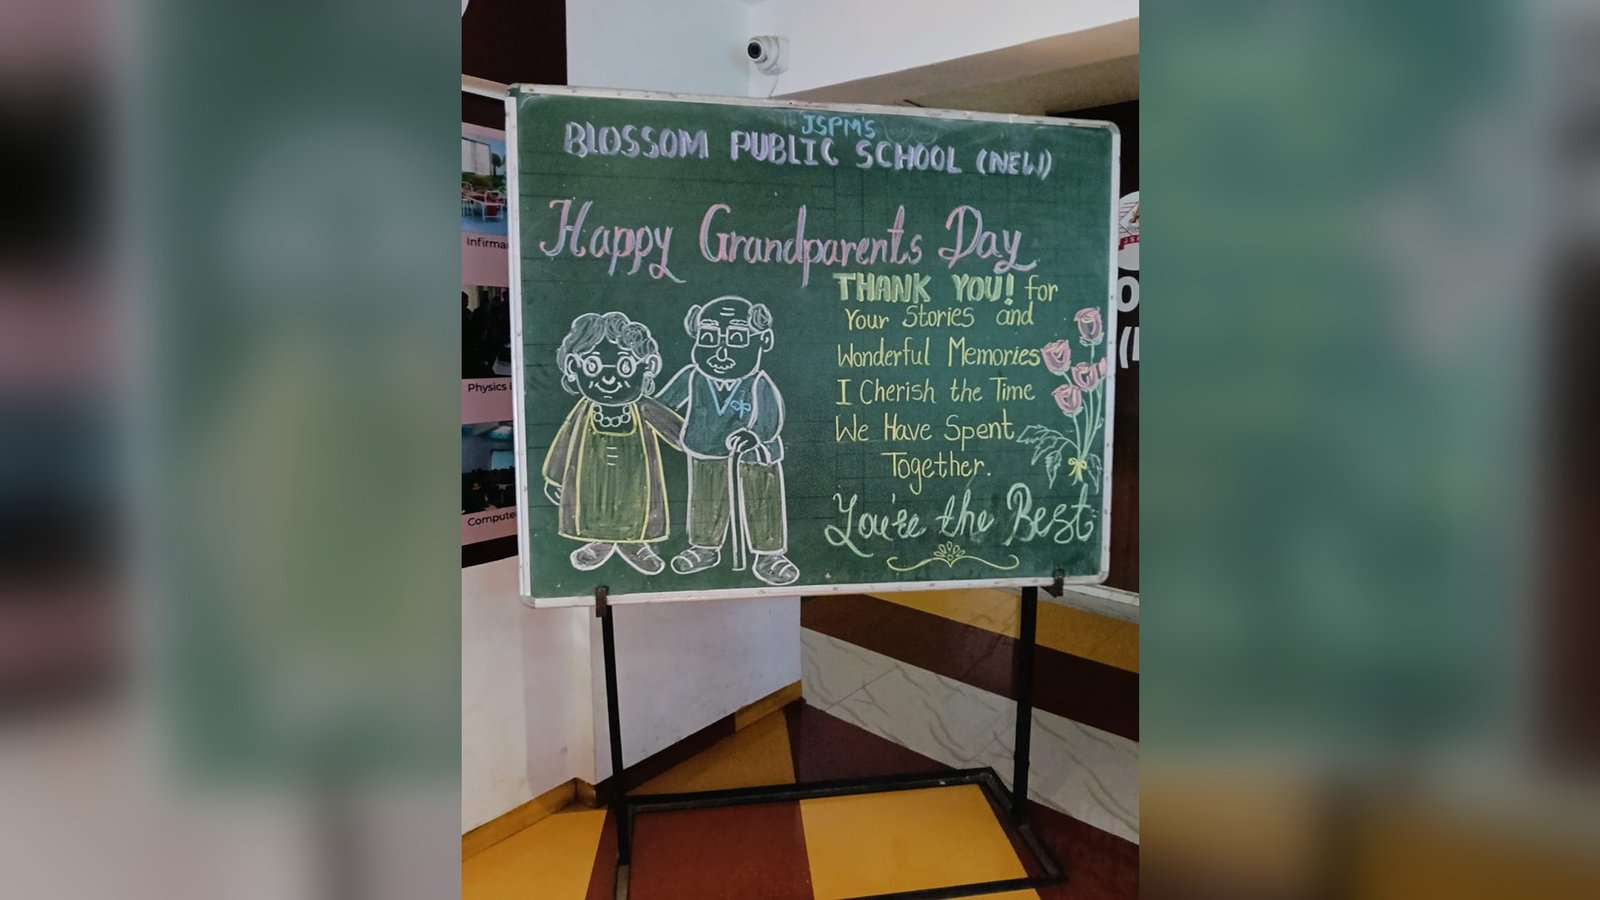 JSPM'S
BLOSSOM PUBLIC SCHOOL (NEW)
Happy Grandparents Day
THANK YOU! for
Your Stories and
Wonderful Memories
I Cherish the Time
We Have Spent
Together.
You're the Best
Physics